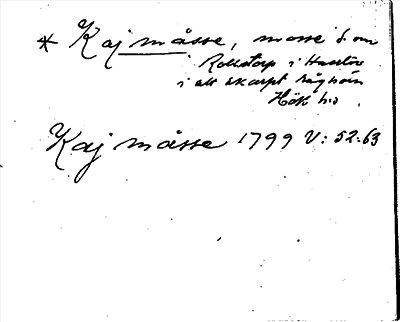 * Kaj måsse, mosse S om
Rolstorp i Haslöv
i ett skarpt råghörn
Hök hd
Kaj måsse 1799 V: 52:63